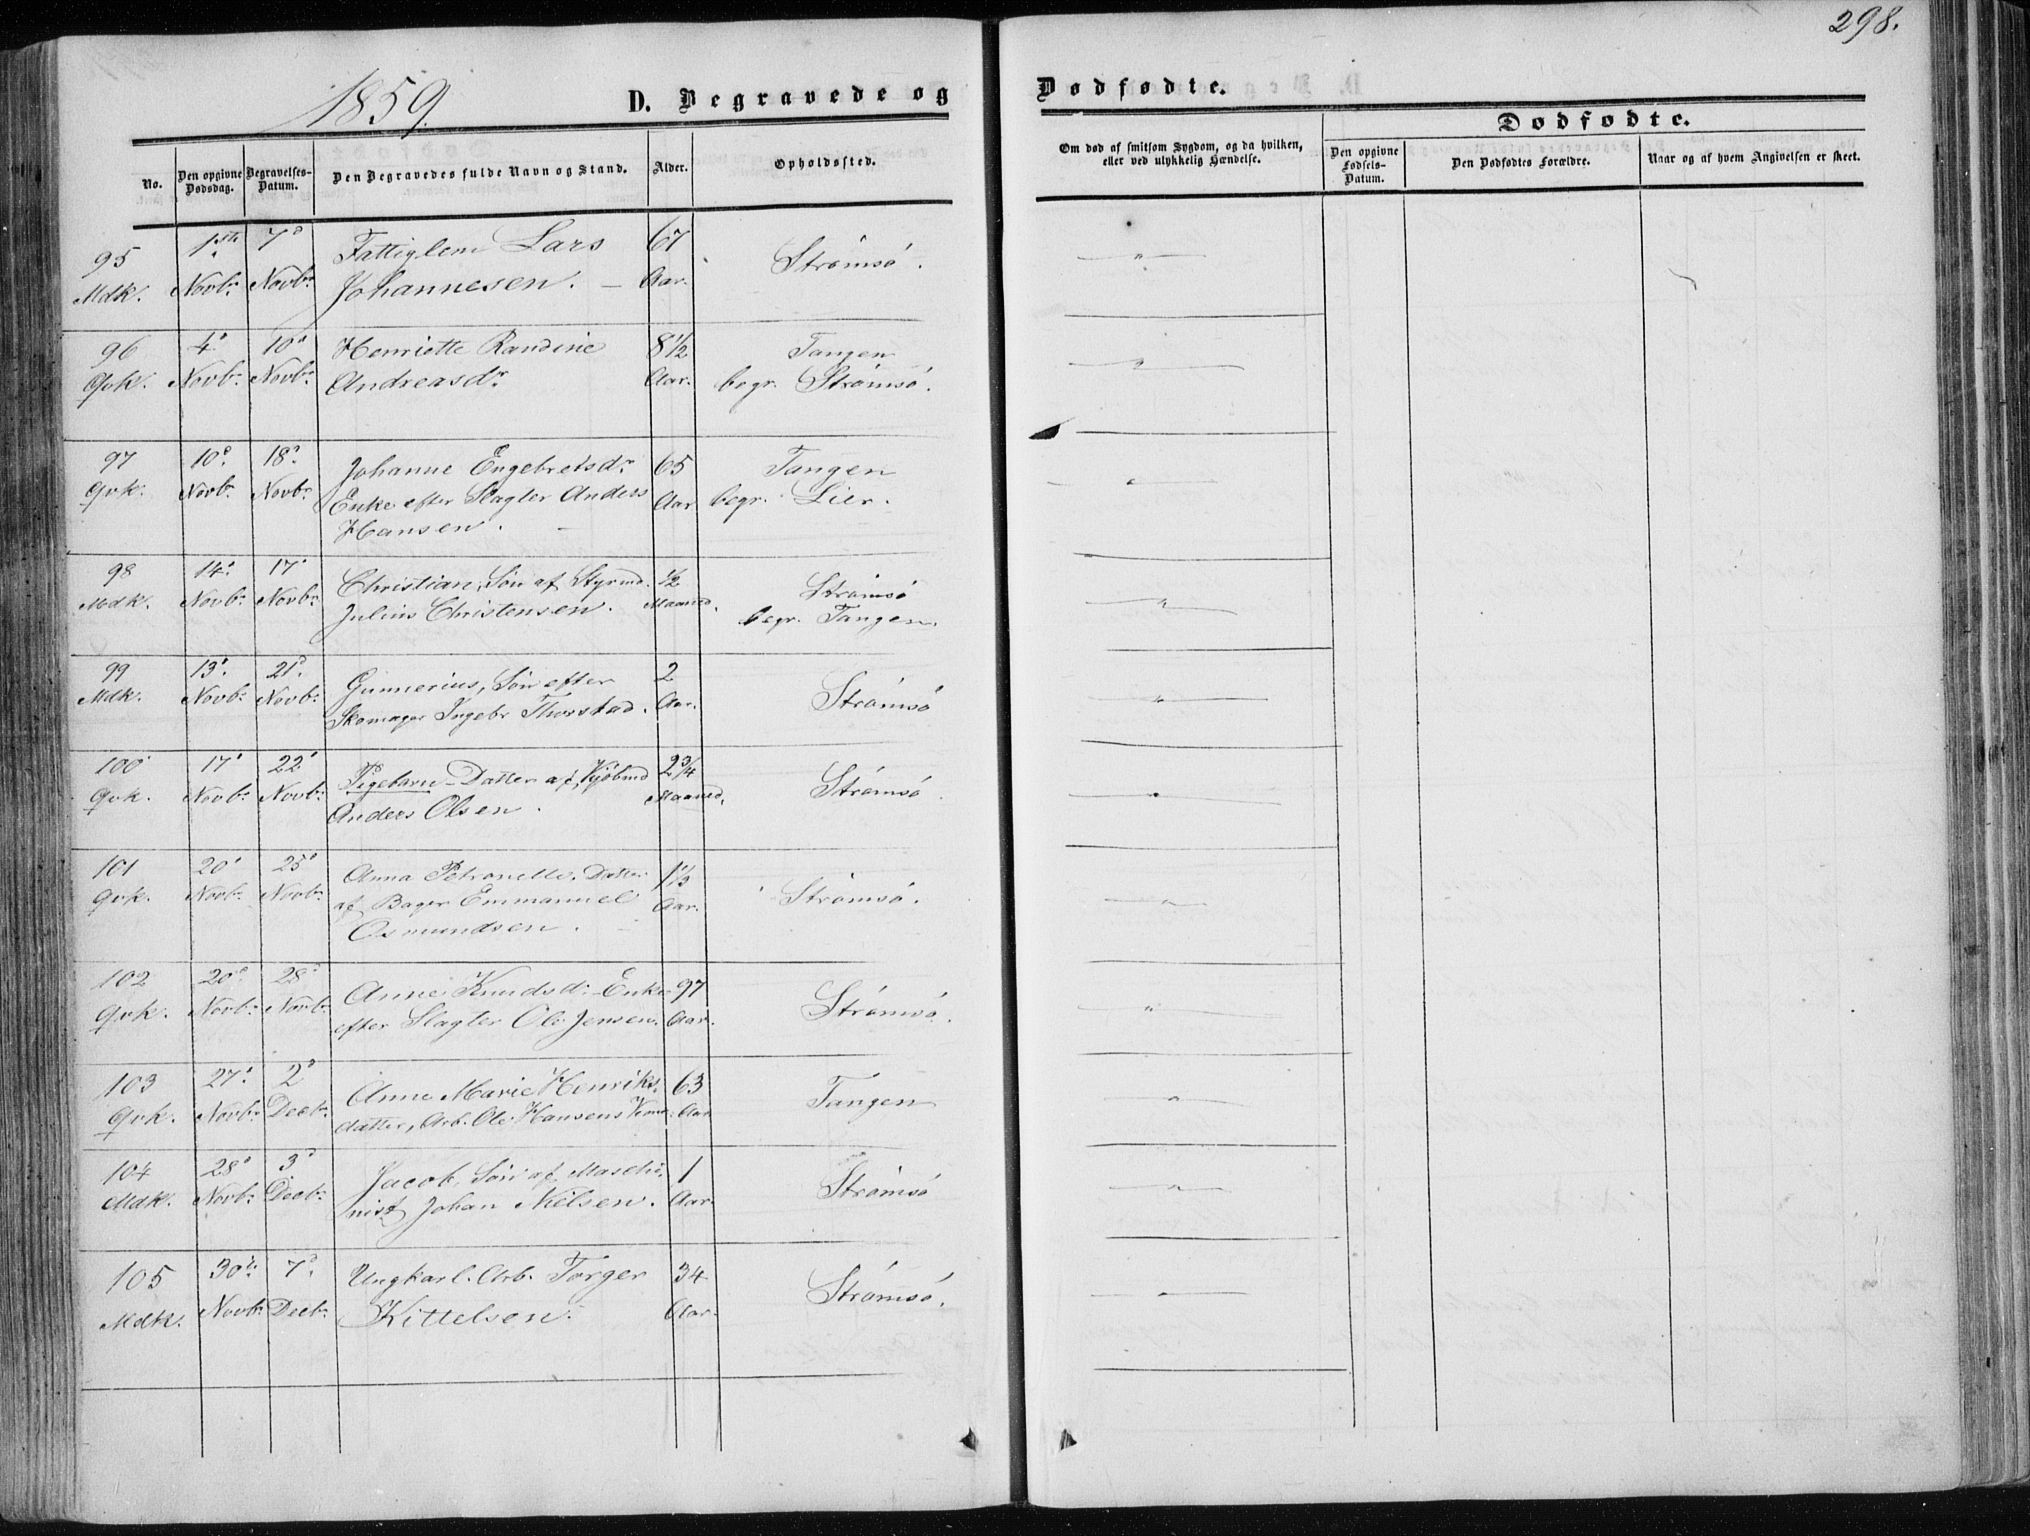 298.
1859.
D. Begravede og Dødfødte.
Dødfødte.
No.
Den opgivne Dødsdag.
Begravelses-Datum.
Den Begravedes fulde Navn og Stand.
Alder.
Opholdssted.
Om død af smitsom Sygdom, og da hvilken,
eller ved ulykkelig Hændelse.
Den opgivne Fødsels-Datum.
Den Dødfødtes Forældre.
Naar og af hvem Angivelsen er skeet.
95 1ste 7de Fattiglem Lars 67 Strømsø.
Mdk. Novbr. Novbr. Johannesen. Aar.
96 4de 10de Henriette Randine 8 1/2 Tangen
Qvk. Novbr. Novbr. Andreasdr. Aar. begr. Strømsø.
97 10de 18de Johanne Engebretsdr. 65 Tangen
Qvk. Novbr. Novbr. Enke efter Slagter Anders Aar begr. Lier.
Hansen.
98 14de 17de Christian, Søn af Styrmd. 1/2 Strømsø
Mdk. Novbr. Novbr. Julius Christensen. Maaned. begr. Tangen.
99 13de 21de Gunnerius, Søn efter 2
Mdk. Novbr. Novbr. Skomager Ingebr Thorstad. Aar. Strømsø
100 17de 22de Pigebarn Datter af Kjøbmd 2 3/4 Strømsø
Qvk. Novbr. Novbr. Anders Olsen. Maaned.
101 20de 25de Anna Petronelle. Datter 1 1/3 Strømsø.
Qvk. Novbr. Novbr. af Bager Emmanuel Aar.
Osmundsen.
102 20de 28de Anne Knudsdr. Enke 97 Strømsø.
Qvk. Novbr. Novbr. efter Slagter Ole Jensen. Aar.
103 27de 2de Anne Marie Henriks 63 Tangen
Qvk. Novbr. Decbr. datter, Arb. Ole Hansens Aar
104 28de 3de Jacob, Søn af Maschi- 1 Strømsø
Mdk. Novbr. Decbr. nist Johan Nielsen. Aar.
105 30te 7de Ungkarl. Arb. Torger 34 Strømsø.
Mdk. Novbr. Decbr. Kittelsen. Aar.